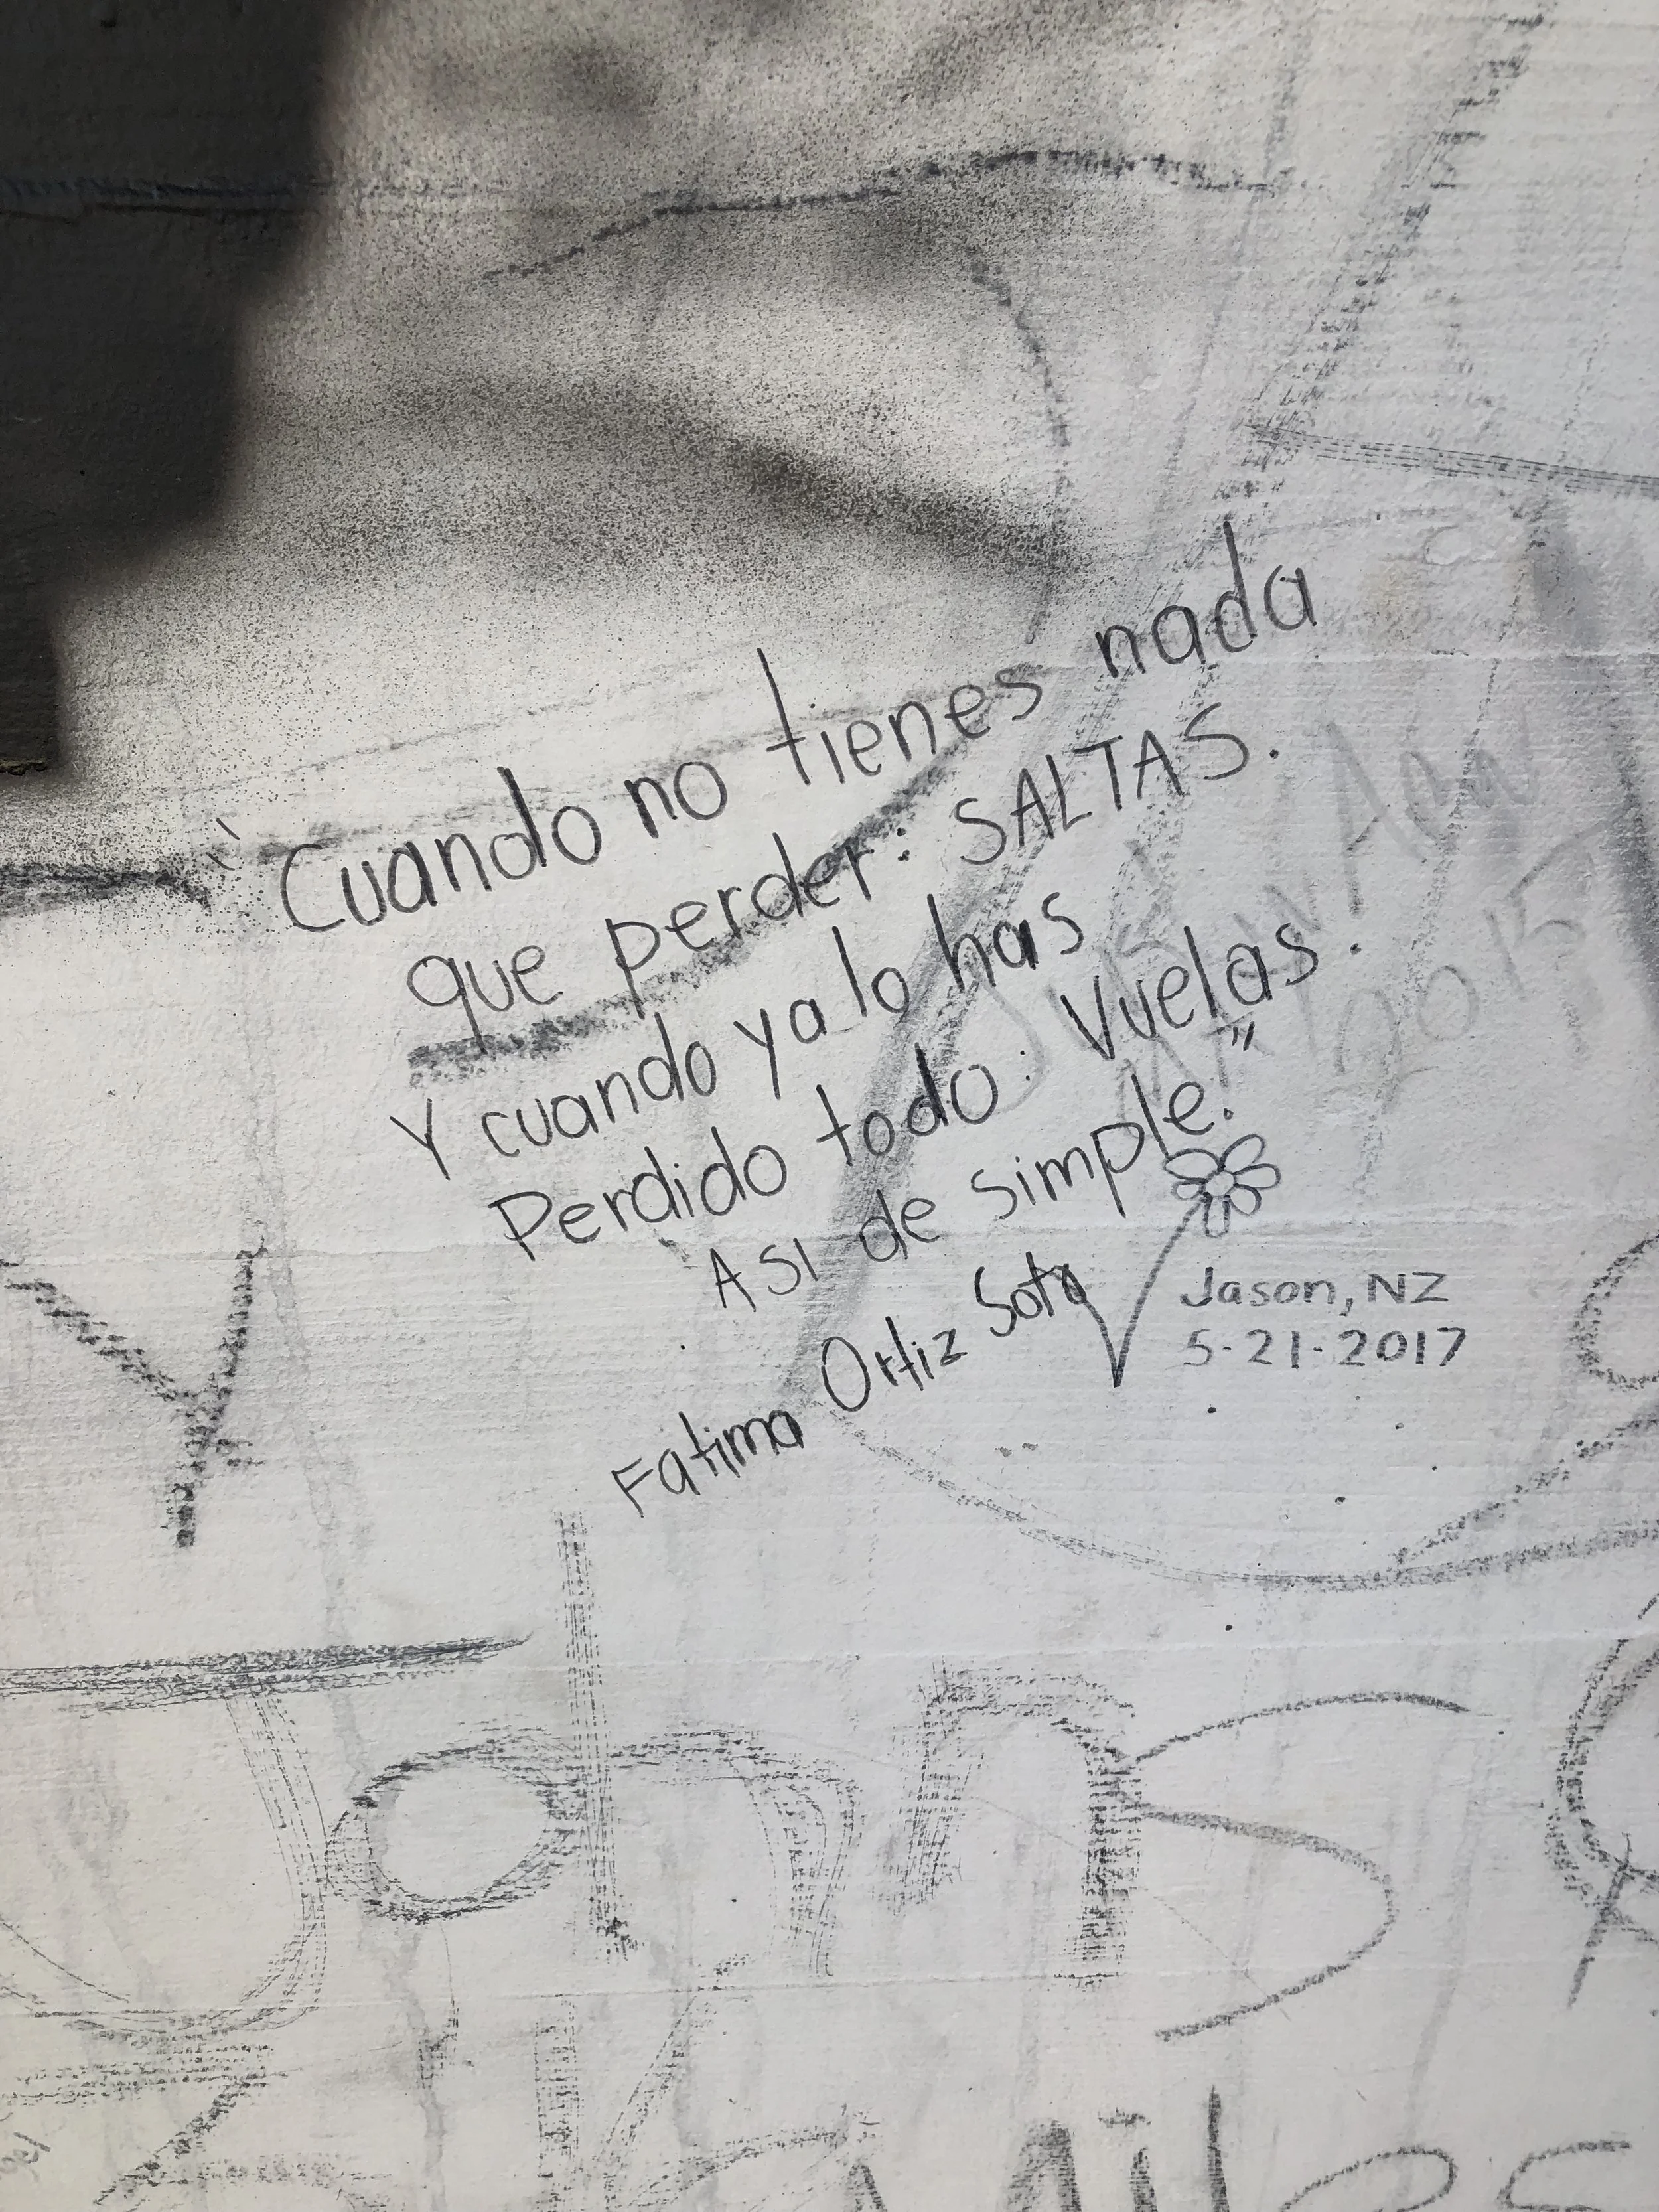 "Cuando no tienes nada
que perder: SALTAS.
Y cuando ya lo has
Perdido todo: Vuelas.
Asi de simple."
Fatima Ortiz Soto
Jason, NZ
5-21-2017
2015
Miles